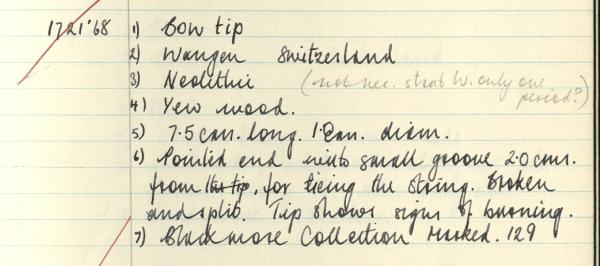 1721'68 1) Bow tip
2) Wangen Switzerland
3) Neolithic (not nec. strat W. only one period?)
4) Yew wood.
5) 7.5 cm. long. 1. cm. diam.
6) Pointed end with small groove 2.0 cms.
from the tip, for tieing the string. Broken
and split. Tip shows signs of burning.
7) Blackmore Collection Marked. 129